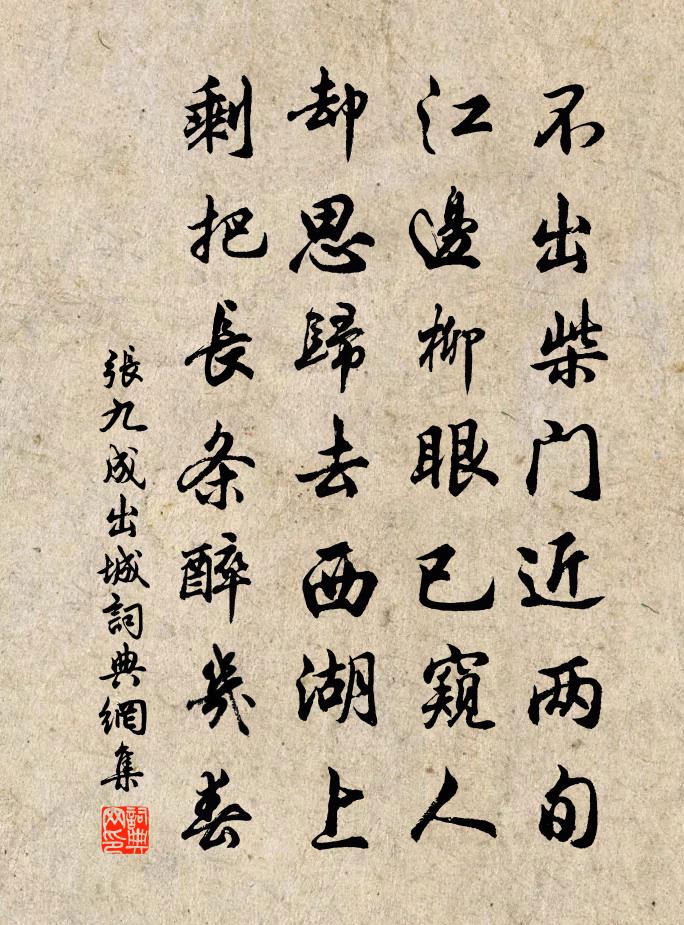 不出柴门近两旬
江邊柳眼已窺人
却思歸去西湖上
剩把長条醉幾春
張九成出城詞典網集
詞典网印